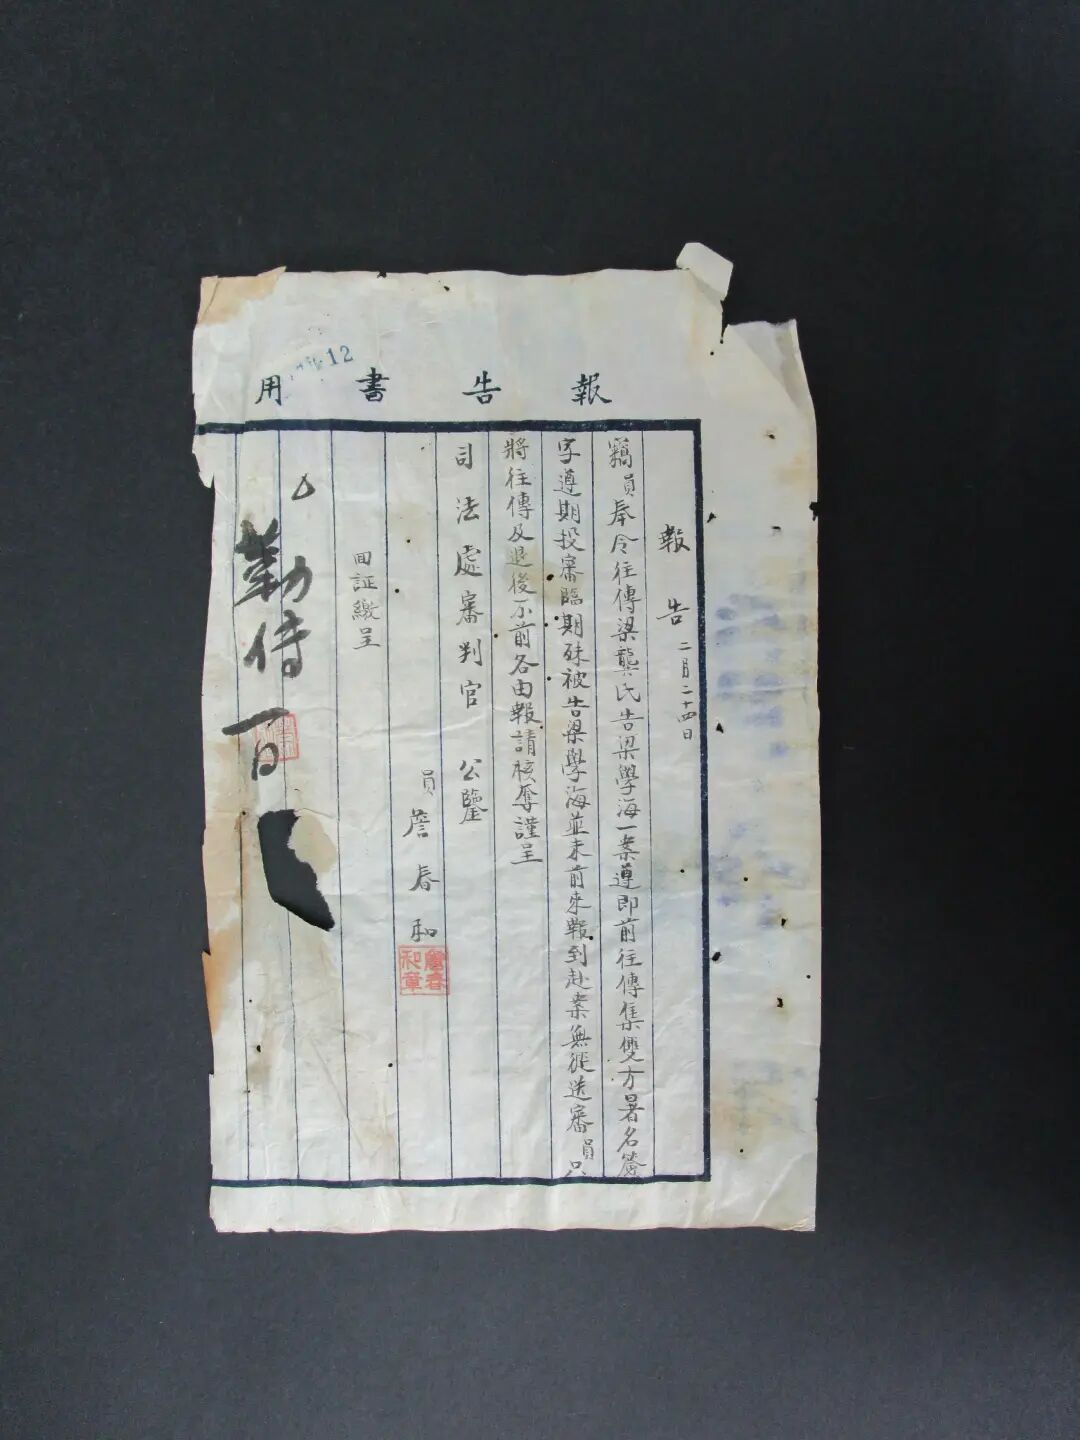 12
報告書用
報告 二月二十四日
竊員奉令往傳梁龔氏告梁學海一案遵即前往傳集雙方署名簽
字遵期投審臨期殊被告梁學海並未前來報到赴案無從送審員只
將往傳及退後不前各由報請核奪謹呈
司法處審判官 公鑒
員詹春和
詹春和章
回証繳呈
勒傳